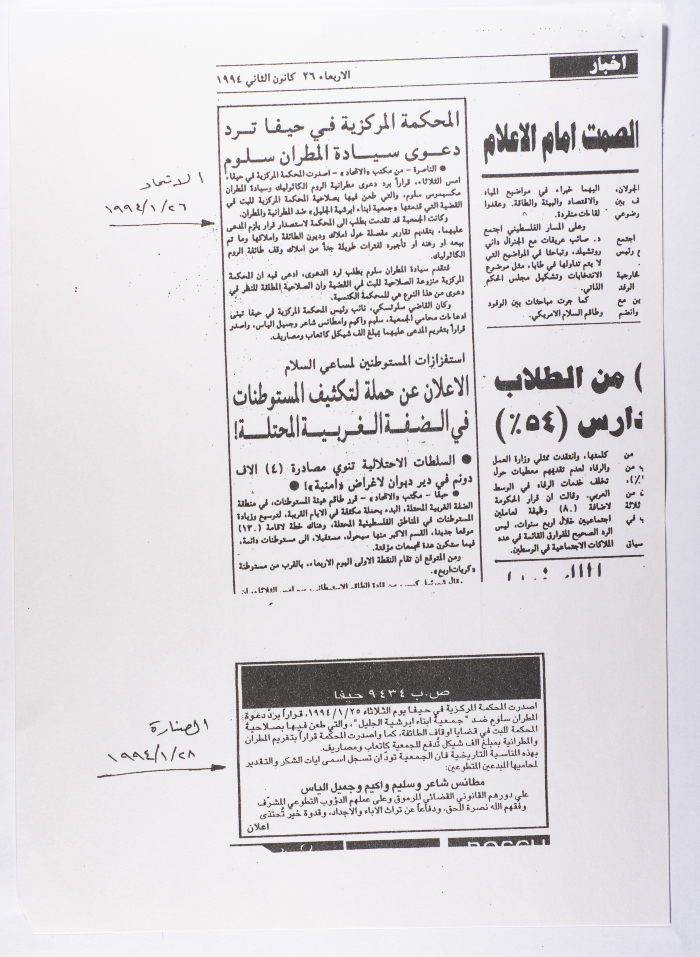 اخبار
الاربعاء ٢٦ كانون الثاني ١٩٩٤
الصمت امام الاعلام
الجولان،
ف بين
وضوعي
اجتمع
ء رئيس
خارجية
الوفد
ين مع
وانضم
اليهما خبراء في مواضيع المياه
والاقتصاد والبيئة والطاقة. وعقدوا
لقاءات منفردة.
وعلى المسار الفلسطيني اجتمع
د. صائب عريقات مع الجنرال داني
روتشيلد، وتباحثا في المواضيع التي
لا يتم تداولها في طابا، مثل موضوع
الانتخابات وتشكيل مجلس الحكم
الذاتي.
كما جرت مباحثات بين الوفود
وطاقم السلام الامريكي.
) من الطلاب
دارس (٥٤٪)
كلمتها، وانتقدت ممثلي وزارة العمل
والرفاه لعدم تقديمهم معطيات حول
تخلف خدمات الرفاه في الوسط
العربي. وقالت ان قرار الحكومة
لاضافة (٨٠) وظيفة لعاملين
اجتماعيين خلال اربع سنوات، ليس
الرد الصحيح للفوارق القائمة في عدد
الملاكات الاجتماعية في الوسطين.
المحكمة المركزية في حيفا ترد
دعوى سيادة المطران سلوم
● الناصرة - من مكتب «الاتحاد» - اصدرت المحكمة المركزية في حيفا،
امس الثلاثاء، قراراً برد دعوى مطرانية الروم الكاثوليك وسيادة المطران
مكسيموس سلوم، والتي طعن فيها بصلاحية المحكمة المركزية للبت في
القضية التي قدمتها «جمعية ابناء ابرشية الجليل» ضد المطرانية والمطران.
وكانت الجمعية قد تقدمت بطلب الى المحكمة لاستصدار قرار يلزم المدعى
عليهما، بتقديم تقارير مفصلة حول املاك وديون الطائفة واملاكها وما تم
بيعه او رهنه أو تأجيره لفترات طويلة جداً من املاك وقف طائفة الروم
الكاثوليك.
فتقدم سيادة المطران سلوم بطلب لرد الدعوى، ادعى فيه ان المحكمة
المركزية منزوعة الصلاحية للبت في القضية وان الصلاحية المطلقة للنظر في
دعوى من هذا النوع هي للمحكمة الكنسية.
وكان القاضي سلوتسكي، نائب رئيس المحكمة المركزية في حيفا تبنى
ادعاءات محامي الجمعية، سليم واكيم ومطانس شاعر وجميل الياس، واصدر
قراراً بتغريم المدعى عليهما بمبلغ الف شيكل كاتعاب ومصاريف.
استفزازات المستوطنين لمساعي السلام
الاعلان عن حملة لتكثيف المستوطنات
في الضفة الغربية المحتلة!
● السلطات الاحتلالية تنوي مصادرة (٤) الاف
دونم في دير دبوان لاغراض «أمنية»! ●
● حيفا - مكتب «الاتحاد» - قرر طاقم هيئة المستوطنات، في منطقة
الضفة الغربية المحتلة، البدء بحملة مكثفة في الايام القريبة، لتوسيع وزيادة
المستوطنات في المناطق الفلسطينية المحتلة، وهناك خطة لاقامة (١٣٠)
موقعا جديدا، القسم الاكبر منها سيحول، مستقبلا، الى مستوطنات دائمة،
فيما ستكون عدة تجمعات مؤقتة.
ومن المتوقع ان تقام النقطة الاولى اليوم الاربعاء، بالقرب من مستوطنة
«كريات اربع».
الاتحاد
١٩٩٤/١/٢٦
الصنارة
١٩٩٤/١/٢٨
ص.ب ٩٤٣٤ حيفا
اصدرت المحكمة المركزية في حيفا يوم الثلاثاء ١٩٩٤/١/٢٥، قراراً بردّ دعوة
المطران سلوم ضد "جمعية ابناء ابرشية الجليل"، والتي طعن فيها بصلاحية
المحكمة للبت في قضايا اوقاف الطائفة، كما واصدرت المحكمة قراراً بتغريم المطران
والمطرانية بمبلغ الف شيكل تُدفع للجمعية كاتعاب ومصاريف.
بهذه المناسبة التاريخية فان الجمعية تودّ ان تسجل اسمى ايات الشكر والتقدير
لحاميها المبدعين المتطوعين:
مطانس شاعر وسليم واكيم وجميل الياس
على دورهم القانوني القضائي المرموق وعلى عملهم الدؤوب التطوعي المشرّف
وفقهم الله نصرة للحق، ودفاعاً عن تراث الاباء والاجداد، وقدوة خير تُحتذى
اعلان
BOSCH